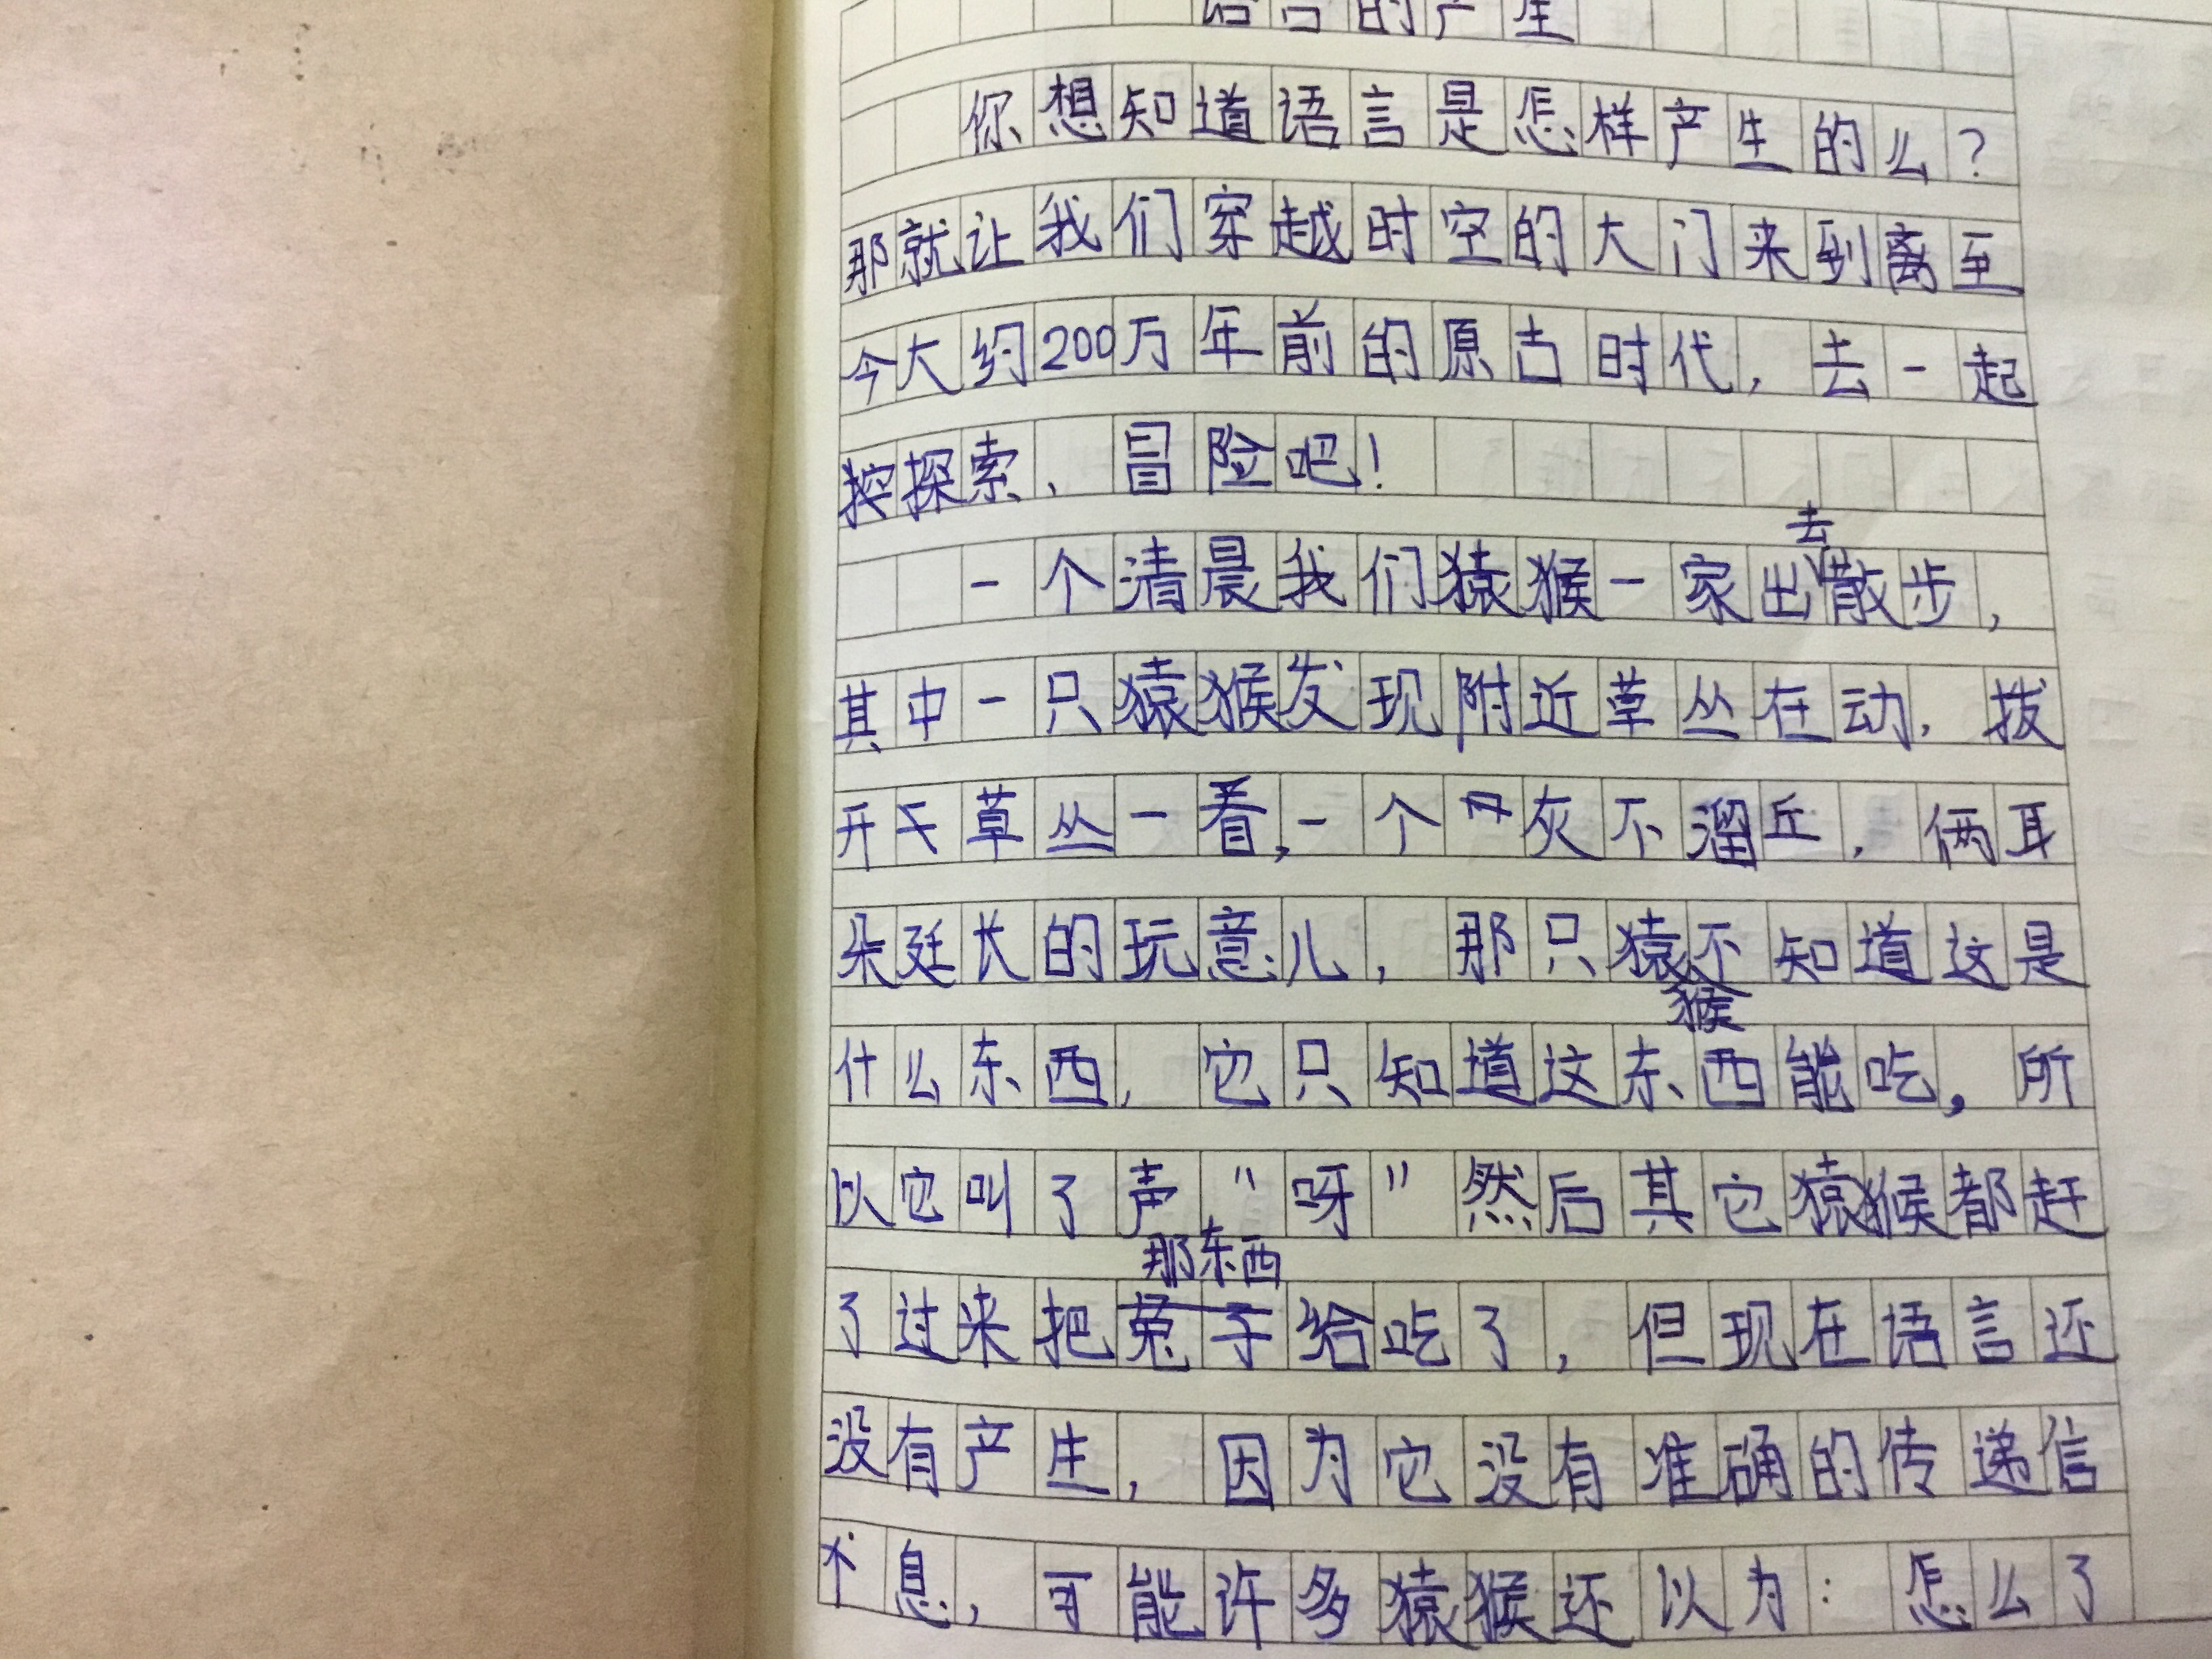 语言的产生
你想知道语言是怎样产生的么？
那就让我们穿越时空的大门来到离至
今大约200万年前的原古时代，去一起
挖探索、冒险吧！
一个清晨我们猿猴一家出去散步，
其中一只猿猴发现附近草丛在动，拔
开草丛一看，一个灰不溜丘，俩耳
朵廷长的玩意儿，那只猿猴不知道这是
什么东西，它只知道这东西能吃，所
以它叫了声“呀”然后其它猿猴都赶
了过来把那东西给吃了，但现在语言还
没有产生，因为它没有准确的传递信
息，可能许多猿猴还以为：怎么了